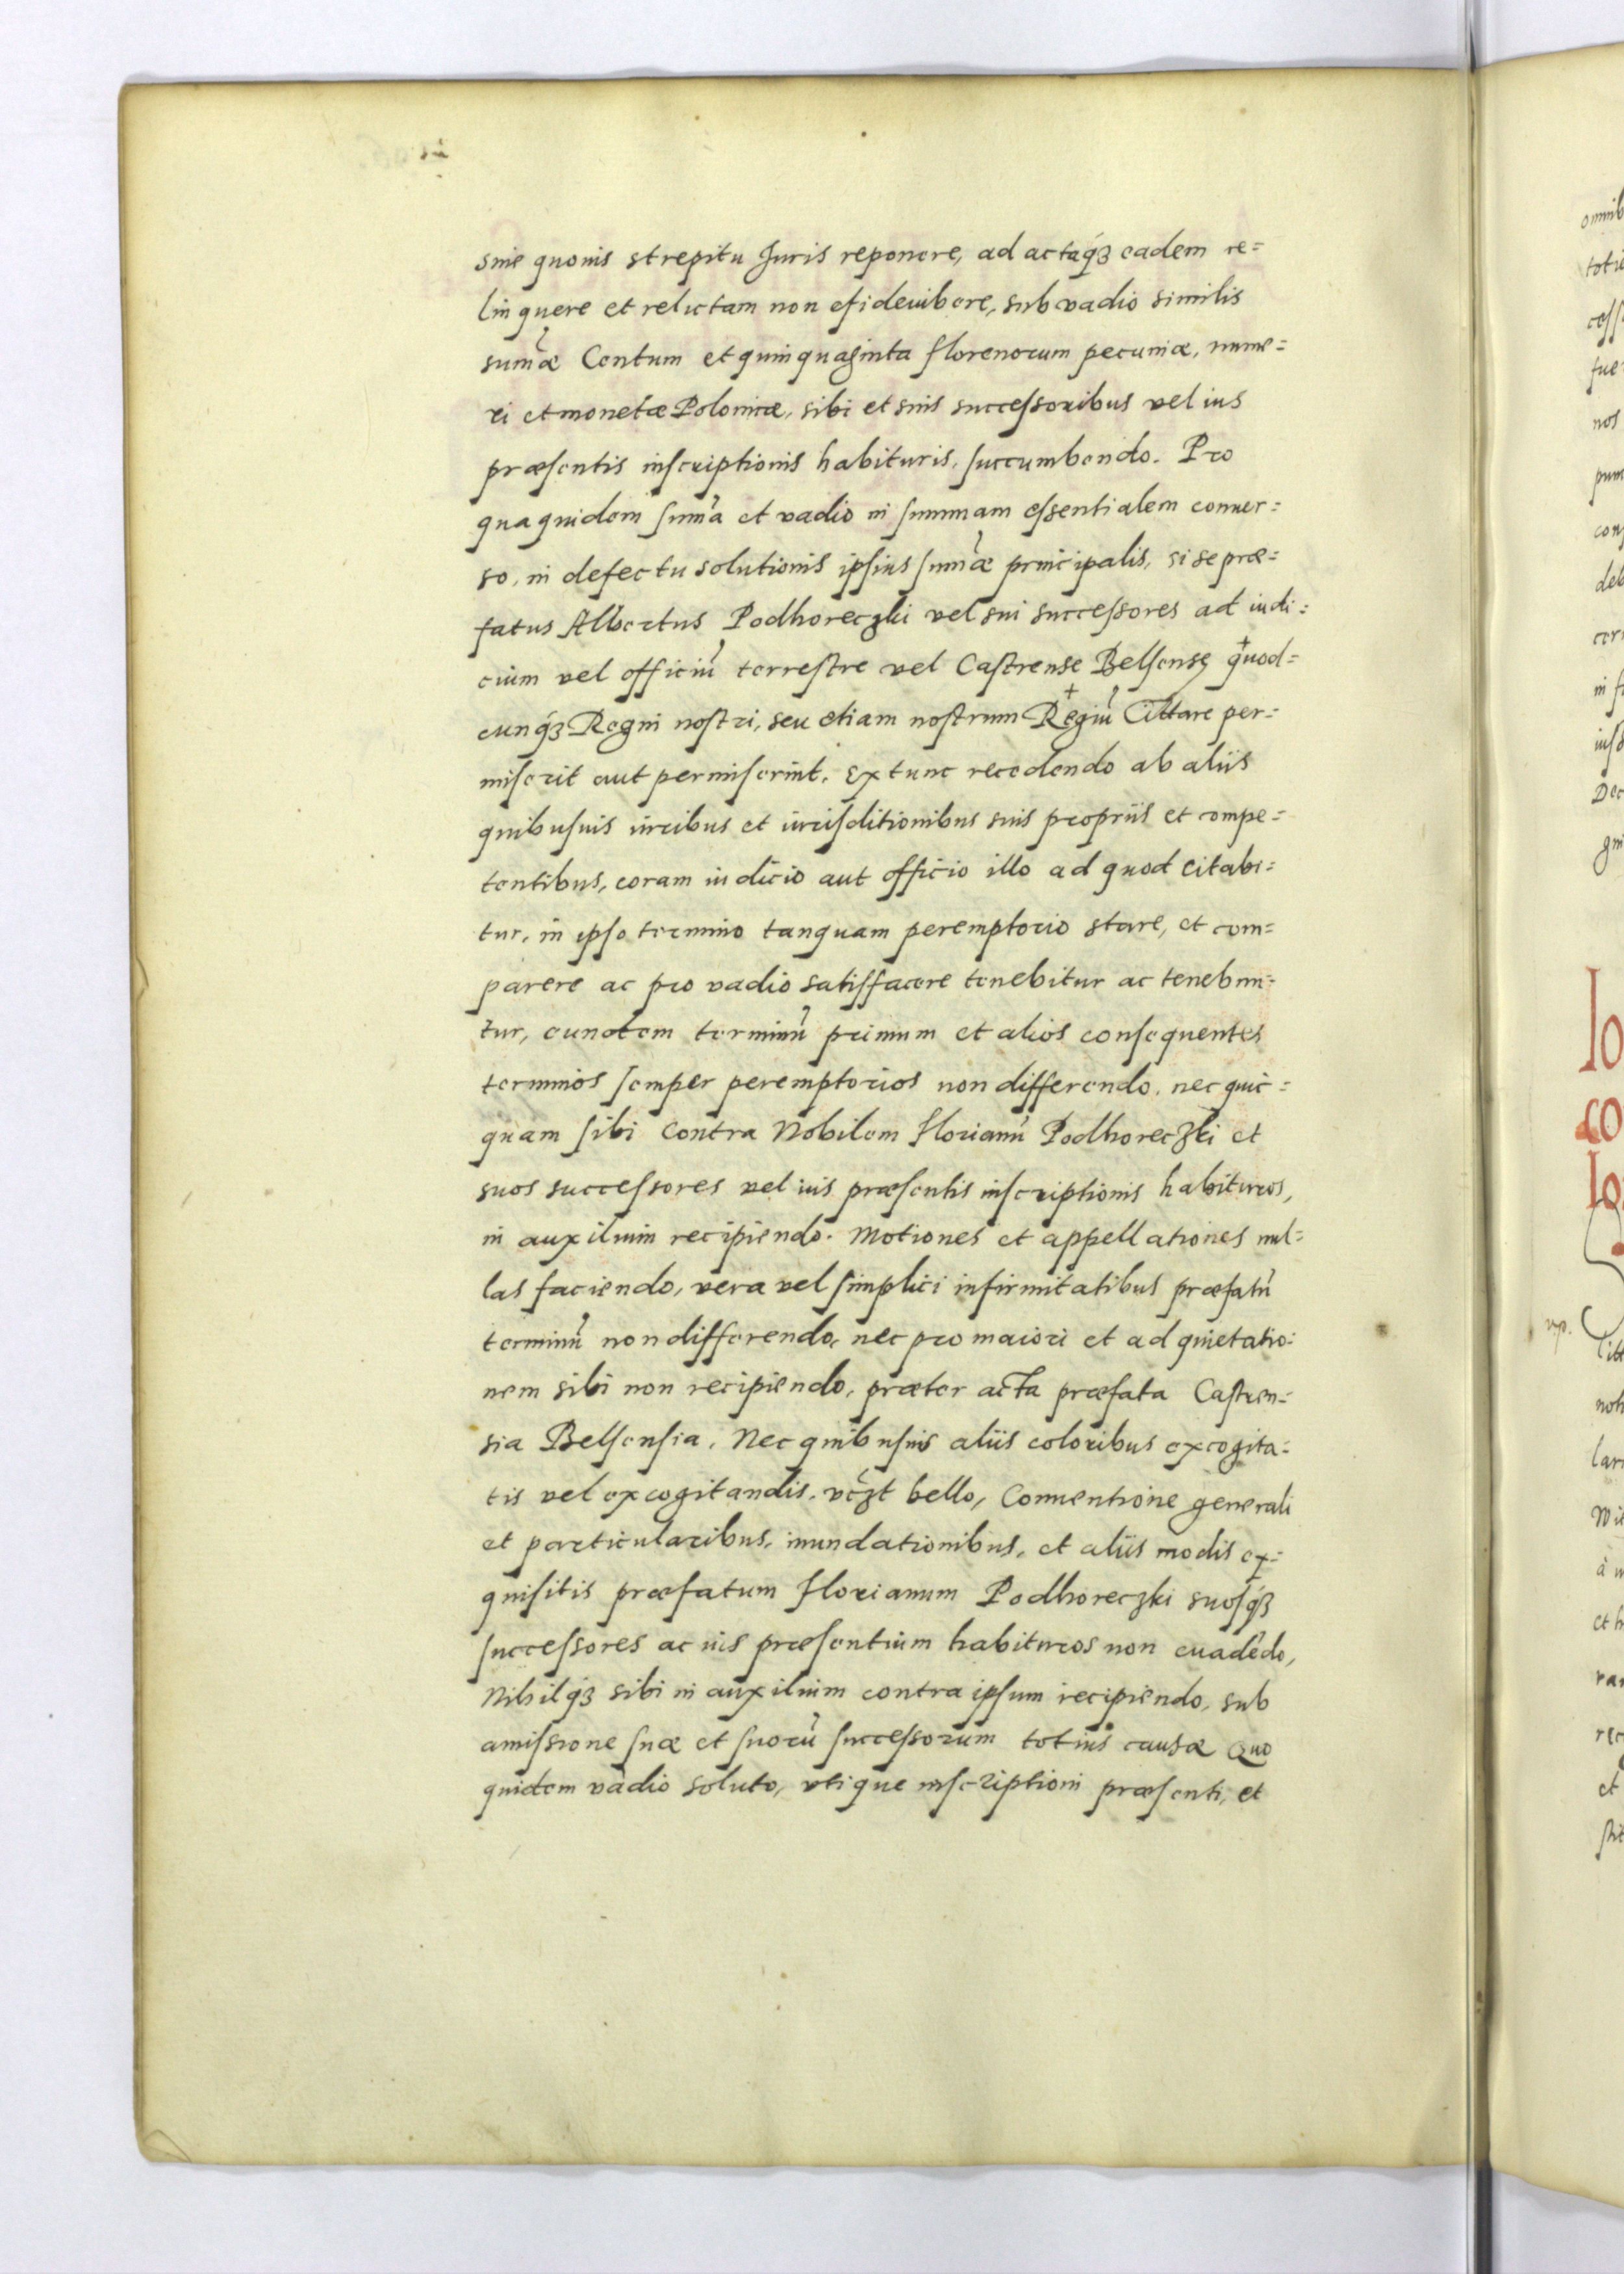 sine quouis strepitu Juris reponere, ad actaq́ꝫ eadem re=
linquere et relictam non
sum̃æ Centum et quinquaginta florenorum pecuniæ, nume=
ri et monetæ Polonicæ, sibi et suis successoribus vel ius
præsentis inscriptionis habituris, succumbendo. Pro
qua quidem sum̃a et vadio in summam essentialem conuer=
so, in defectu solutionis ipsius sum̃æ principalis, si se præ=
fatus Albertus Podhoreczki vel sui successores ad iudi=
cium vel officiũ terrestre vel Castrense Belsense quod=
cunq́ꝫ Regni nostri, seu etiam nostrum Regiũ Cittare per=
miserit aut permiserint. Extunc recedendo ab aliis
quibusuis iuribus et iurisditionibus suis propriis et compe=
tentibus, coram iudicio aut officio illo ad quod citabi=
tur, in ipso termino tanquam peremptorio stare, et com=
parere ac pro vadio satisfacere tenebitur ac tenebun=
tur, eundem terminũ primum et alios consequentes
terminos semper peremptorios non differendo, nec quic=
quam sibi contra Nobilem Florianũ Podhoreczki et
suos successores vel ius præsentis inscriptionis habituros,
in auxilium recipiendo. Motiones et appellationes nul=
las faciendo, vera vel simplici infirmitatibus præfatũ
terminũ non differendo, nec pro maiori et ad quietatio=
nem sibi non recipiendo, præter acta præfata Castren=
sia Belsensia. Nec quibusuis aliis coloribus excogita=
tis vel excogitandis. vc̃zt bello, Conuentione generali
et particularibus, inundationibus, et aliis modis ex=
quisitis præfatum Florianum Podhoreczki suosq́ꝫ
successores ac ius præsentium habituros non euadẽdo,
Nihilq́ꝫ sibi in auxilium contra ipsum recipiendo, sub
amissione suæ et suorũ successorum totius causæ Quo
quidem vadio soluto, vtique inscriptioni præsenti, et